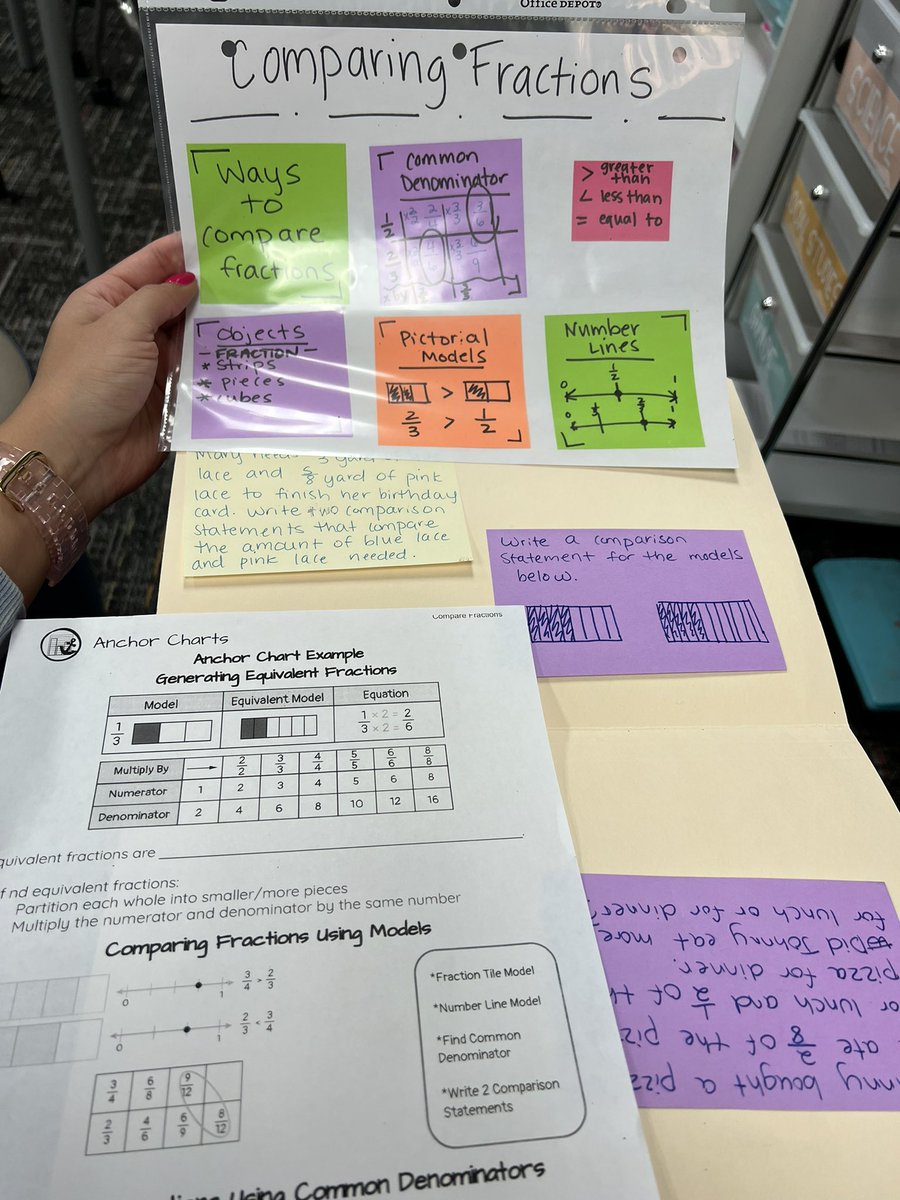 Office DEPOT
Comparing Fractions
Ways
to
compare
fractions
Common
Denominator
1/2 ×2/2 2/4 ×3/3 3/6
2/3 4/6 ×3/3 6/9
> greater
than
< less than
= equal to
Objects
- FRACTION -
* strips
* pieces
* cubes
Pictorial
Models
>
2/3 > 1/2
Number
Lines
1/2
0 1
0 2/3 1
lace and 5/8 yard of pink
lace to finish her birthday
card. Write two comparison
statements that compare
the amount of blue lace
and pink lace needed.
Write a comparison
statement for the models
below.
Compare Fractions
Anchor Charts
Anchor Chart Example
Generating Equivalent Fractions
Model Equivalent Model Equation
1/3 1/3 × 2 = 2/6 × 2 =
Multiply By 2/2 3/3 4/4 5/5 6/6 8/8
Numerator 1 2 3 4 5 6 8
Denominator 2 4 6 8 10 12 16
quivalent fractions are
nd equivalent fractions:
Partition each whole into smaller/more pieces
Multiply the numerator and denominator by the same number
Comparing Fractions Using Models
0 1 3/4 > 2/3
0 1 2/3 < 3/4
3/4 6/8 9/12
2/3 4/6 6/9 8/12
*Fraction Tile Model
*Number Line Model
*Find Common
Denominator
*Write 2 Comparison
Statements
Using Common Denominators
nny bought a pizz
ate 2/8 of the piz
or lunch and 1/2 of th
pizza for dinner.
Did Johnny eat more
for lunch or for dinner?
SCIENCE